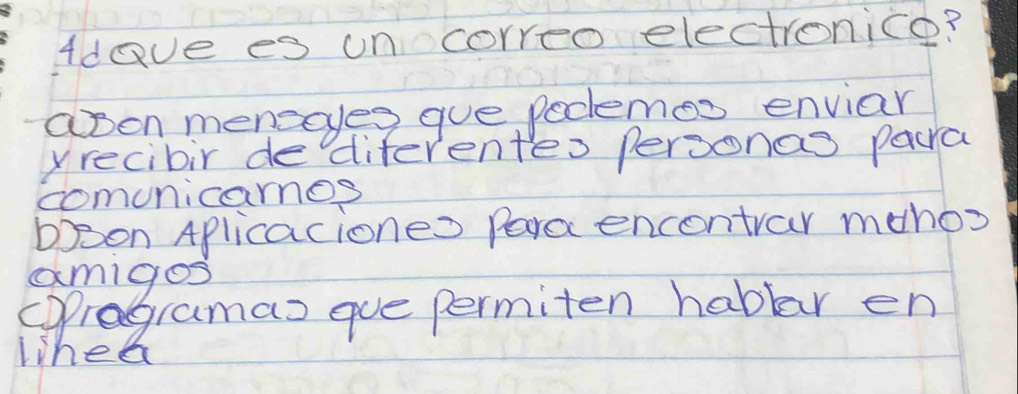 1¿Que es un correo electronico?
a)son mensayes que podemos enviar
y recibir de diferentes personas para
comunicarnos
b)son Aplicaciones para encontrar muchos
amigos
c)Programas que permiten hablar en
linea